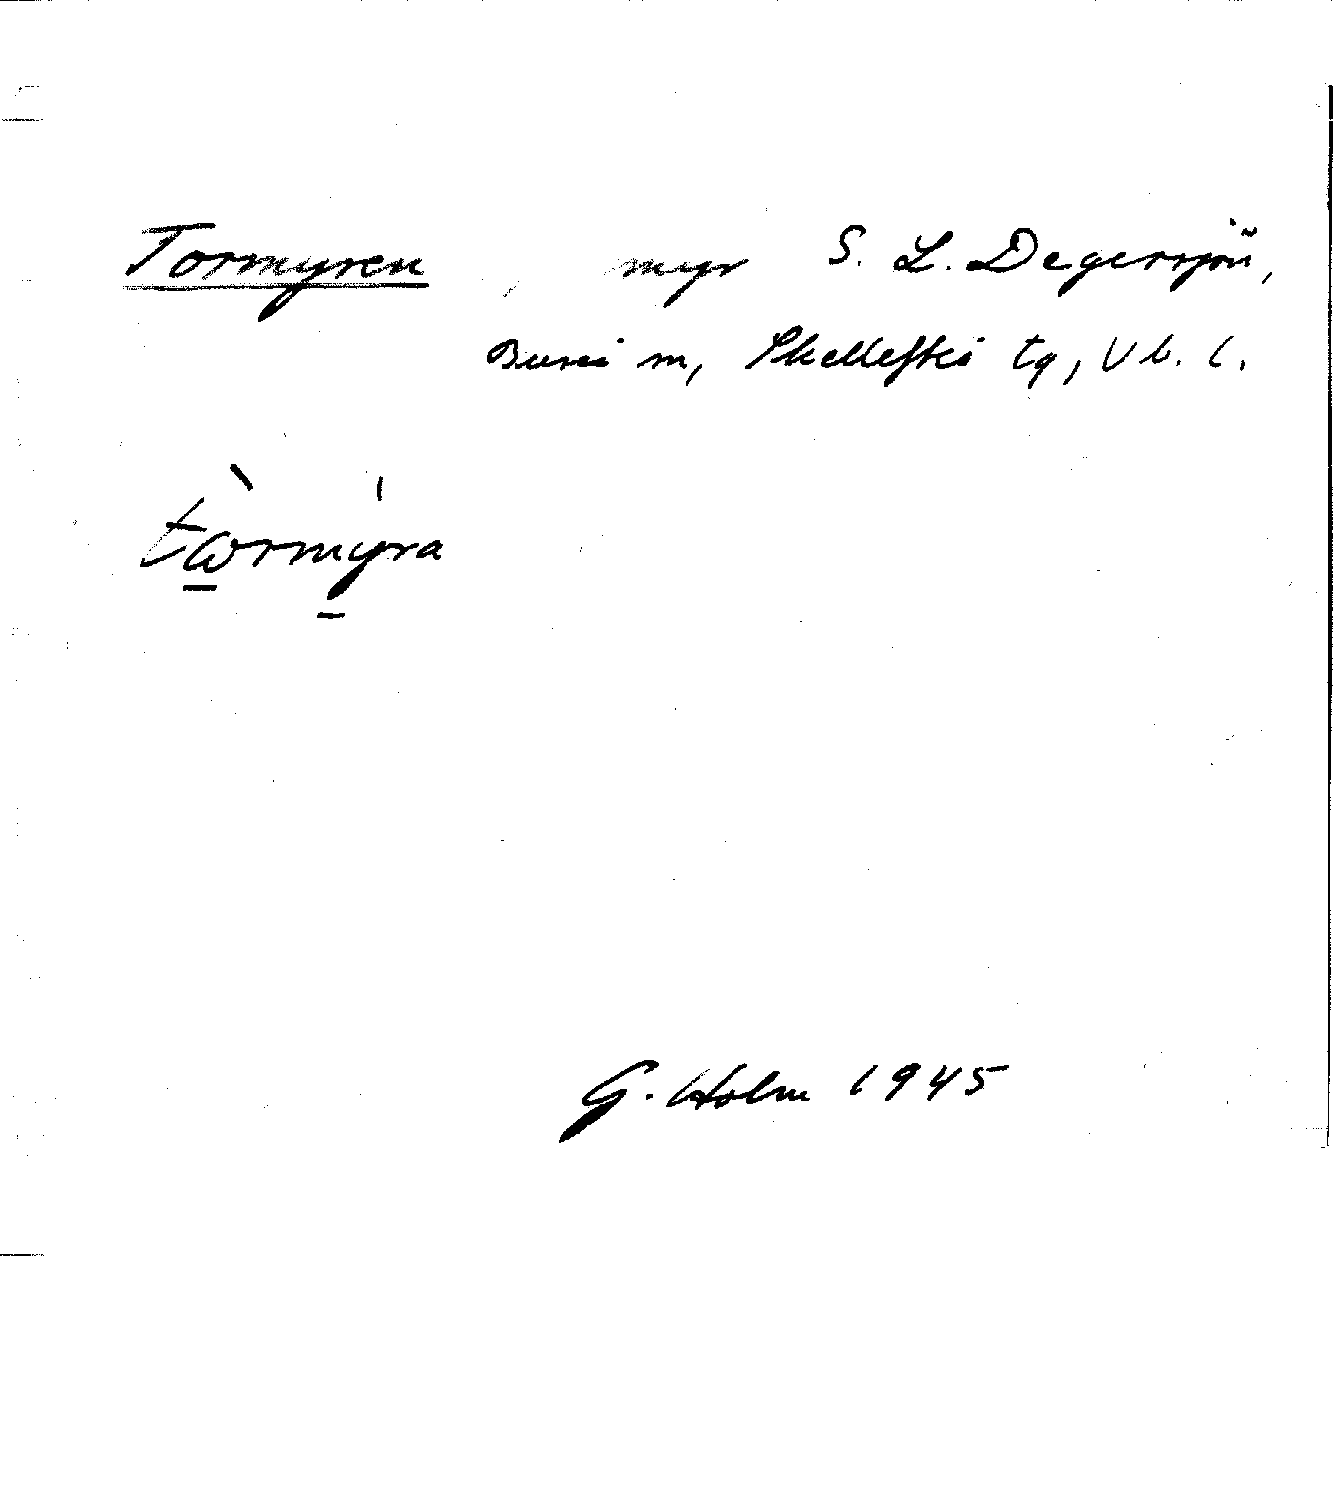 Tormyren, myr S. L. Degersjön,
Bureå m, Skellefteå tg, Vb. l.
tωrmyra
G. Holm 1945